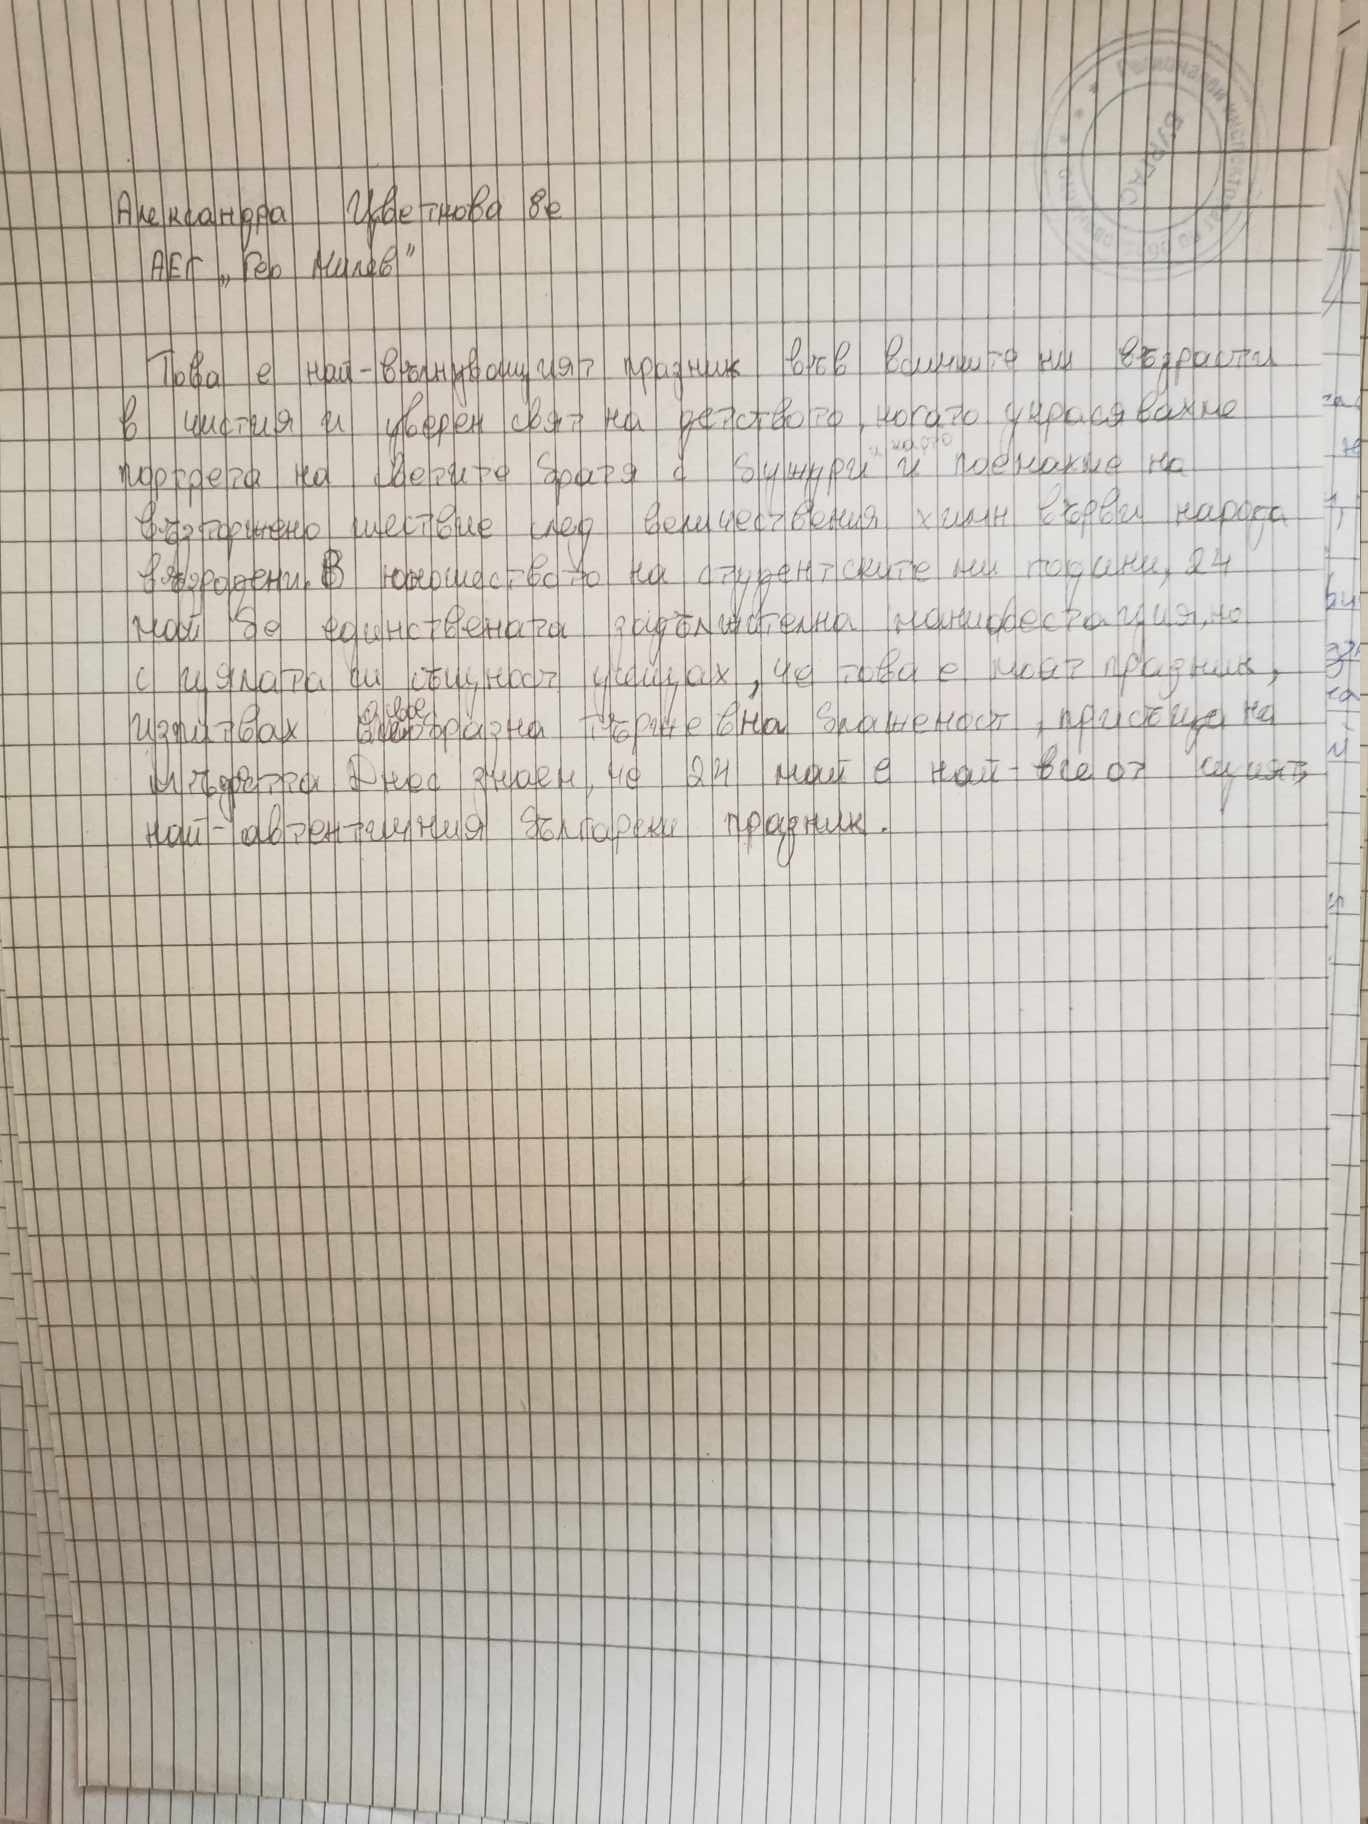 Александра Цветкова 8е
АЕГ „Гео Милев"
Това е най-вълнуващият празник във всичките ни възрасти
в чистия и уверен свят на детството, когато украсявахме
портрета на Светите братя с божури и като поемахме на
възторжено шествие след величествения химн върви народе
възродени. В юношеството на студентските ни години, 24
май бе единствената задължителна манифестация, но
с цялата си същност усещах, че това е моят празник,
изпитвах своеобразна тържевна блаженост, присъща на
мъдрата Днес знаем, че 24 май е най-все от
най-автентичния български празник.